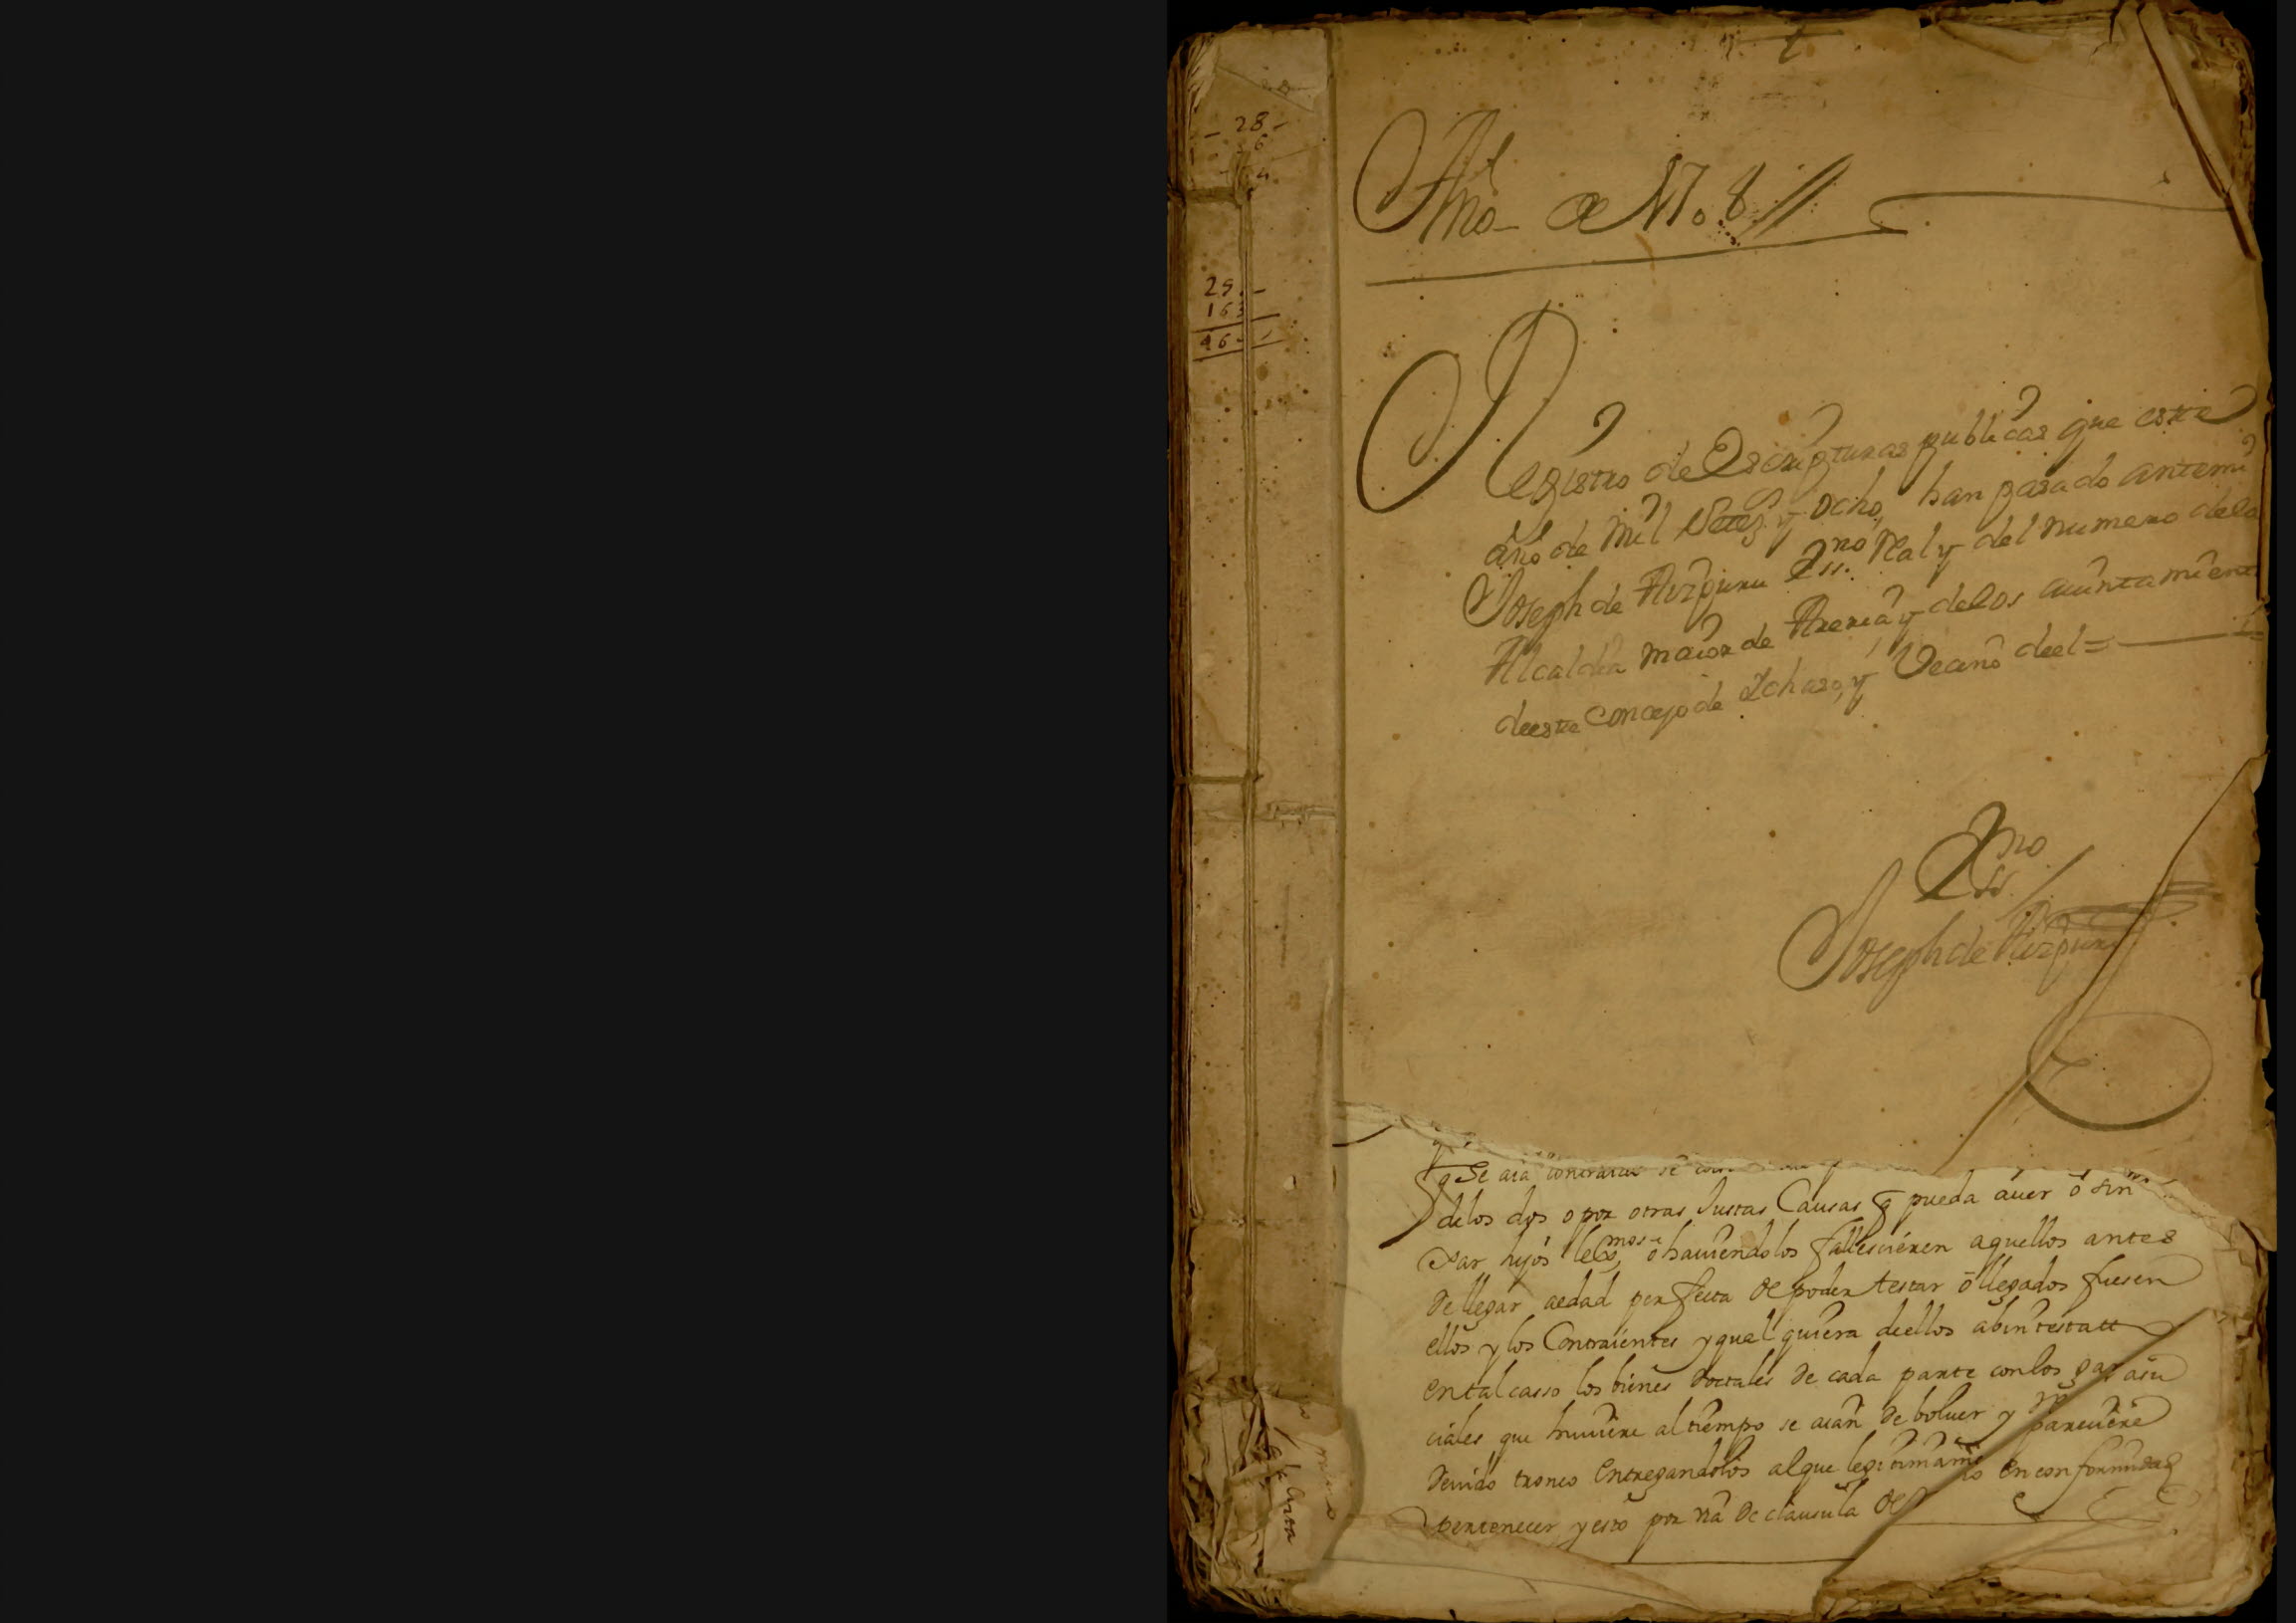 28
6
4
25
16
46
Año de 1708
Registro de Escripturas publicas que este
año de mil Settez.s y ocho, han pasado antemi
Joseph de Aizpuru Ess.no Real y del numero dela
Alcaldia maior de Areria y delos aiuntamient
deeste Concejo de Ichaso, y Vecino deel =
Ess.no
Joseph de Aizpuru
q Se aia
delos dos o por otras Justas Causas q pueda auer o sin
Dar hijos legmos, o hauiendolos fallescieren aquellos antes
de llegar aedad perfecta de poder testar o llegados fuesen
ellos y los Contraientes y qualquiera deellos abintestatt
ental casso los bienes dottales de cada parte conlos
ciales que huuiere al tiempo se aian de boluer y
deuido tronco Entregandolos alque legitimamte pareciere
pertenecer y esto por via de clausula de en conformidad
ala Carta